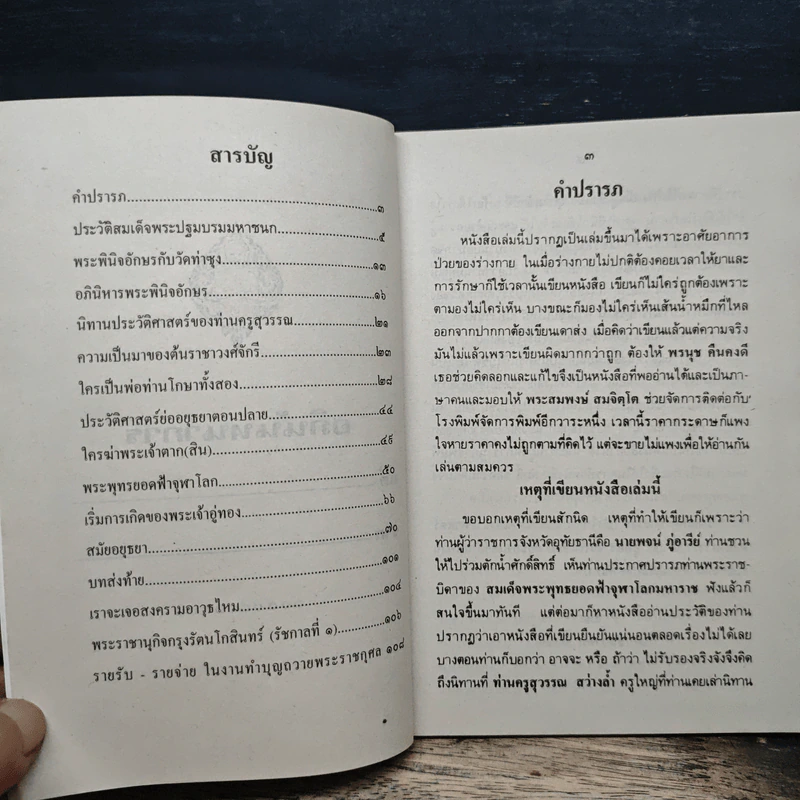 สารบัญ
คำปรารภ....................................................๓
ประวัติสมเด็จพระปฐมบรมมหาชนก...........................๕
พระพินิจอักษรกับวัดท่าซุง..................................๑๓
อภินิหารพระพินิจอักษร....................................๑๖
นิทานประวัติศาสตร์ของท่านครูสุวรรณ.........................๒๑
ความเป็นมาของต้นราชาวงศ์จักรี.............................๒๓
ใครเป็นพ่อท่านโกษาทั้งสอง.................................๒๘
ประวัติศาสตร์ย่ออยุธยาตอนปลาย............................๔๔
ใครฆ่าพระเจ้าตาก(สิน)....................................๔๙
พระพุทธยอดฟ้าจุฬาโลก...................................๕๐
เริ่มการเกิดของพระเจ้าอู่ทอง...............................๖๖
สมัยอยุธยา..............................................๗๐
บทส่งท้าย...............................................๑๐๑
เราจะเจอสงครามอาวุธไหม.................................๑๐๔
พระราชานุกิจกรุงรัตนโกสินทร์ (รัชกาลที่ ๑)...................๑๐๖
รายรับ - รายจ่าย ในงานทำบุญถวายพระราชกุศล ๑๐๘
๓
คำปรารภ
หนังสือเล่มนี้ปรากฏเป็นเล่มขึ้นมาได้เพราะอาศัยอาการ
ป่วยของร่างกาย ในเมื่อร่างกายไม่ปกติต้องคอยเวลาให้ยาและ
การรักษาก็ใช้เวลานั้นเขียนหนังสือ เขียนก็ไม่ใคร่ถูกต้องเพราะ
ตามองไม่ใคร่เห็น บางขณะก็มองไม่ใคร่เห็นเส้นน้ำหมึกที่ไหล
ออกจากปากกาต้องเขียนเดาส่ง เมื่อคิดว่าเขียนแล้วแต่ความจริง
มันไม่แล้วเพราะเขียนผิดมากกว่าถูก ต้องให้ พรนุช คืนคงดี
เธอช่วยคิดลอกและแก้ไขจึงเป็นหนังสือที่พออ่านได้และเป็นภา-
ษาคนและมอบให้ พระสมพงษ์ สมจิตฺโต ช่วยจัดการติดต่อกับ
โรงพิมพ์จัดการพิมพ์อีกวาระหนึ่ง เวลานี้ราคากระดาษก็แพง
ใจหายราคาคงไม่ถูกตามที่คิดไว้ แต่จะขายไม่แพงเพื่อให้อ่านกัน
เล่นตามสมควร
เหตุที่เขียนหนังสือเล่มนี้
ขอบอกเหตุที่เขียนสักนิด เหตุที่ทำให้เขียนก็เพราะว่า
ท่านผู้ว่าราชการจังหวัดอุทัยธานีคือ นายพจน์ ภู่อารีย์ ท่านชวน
ให้ไปร่วมตักน้ำศักดิ์สิทธิ์ เห็นท่านประกาศปรารภท่านพระราช-
บิดาของ สมเด็จพระพุทธยอดฟ้าจุฬาโลกมหาราช ฟังแล้วก็
สนใจขึ้นมาทันที แต่ต่อมาก็หาหนังสืออ่านประวัติของท่าน
ปรากฏว่าเอาหนังสือที่เขียนยืนยันแน่นอนตลอดเรื่องไม่ได้เลย
บางตอนท่านก็บอกว่า อาจจะ หรือ ถ้าว่า ไม่รับรองจริงจังจึงคิด
ถึงนิทานที่ ท่านครูสุวรรณ สว่างล้ำ ครูใหญ่ที่ท่านเคยเล่านิทาน